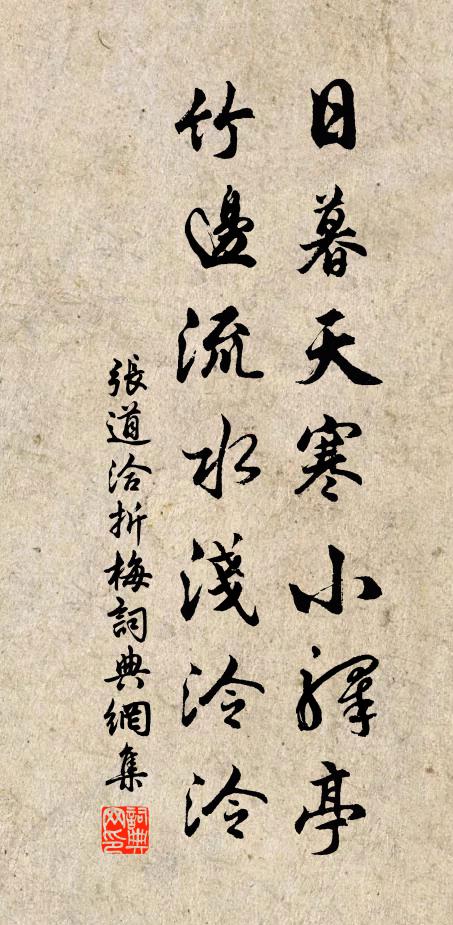 日暮天寒小驛亭
竹邊流水淺泠泠
張道洽折梅詞典網集
詞典網印